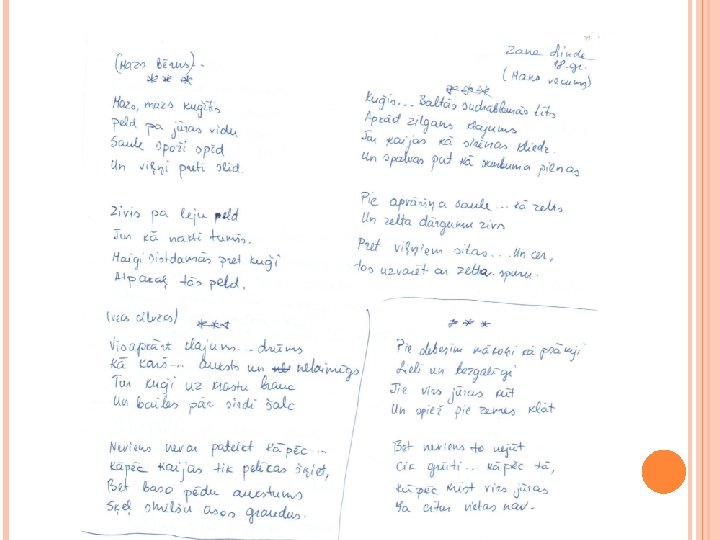 (Mazs bērns).
* * *
Mazs, mazs kuģītis
Peld pa jūras vidu
Saule spoži spīd
Un viļņi preti slīd.
Zivis pa leju peld
Tur kā naktī tumšs.
Maigi sistdamās pret kuģi
Atpakaļ tās peld.
Zane Linde
18.gr.
(Mans vecums)
* * *
Kuģis... Baltās sudrablāmās tīts
Apkād zilgans klajums
Tur kaijas kā sirēnas kliedz.
Un spalvas put kā skarbuma pilnas
Pie apvāršņa saule... kā zelts
Un zelta dārgumu zivs
Pret viļņiem sitas... Un cer,
tos uzvarēt ar zelta spuru.
(vecs cilvēks)
* * *
Visapkārt klajums... drūms
Kā karš... auksts un nelaimīgs
Tur kuģi uz krastu brauc
Un bailes pār sirdi šalc
Neviens nevar pateikt kāpēc...
Kāpēc kaijas tik pelēkas šķiet,
Bet baso pēdu aukstums
Sķeļ smilšu asos graudus.
* * *
Pie debesīm mākoņi kā prāmji
Lieli un bezgalīgi
Tie virs jūras krīt
Un spiež pie zemes klāt
Bet neviens to nejūt
Cik grūti... kāpēc tā,
Kāpēc mist virs jūras
Ja citur vietas nav.